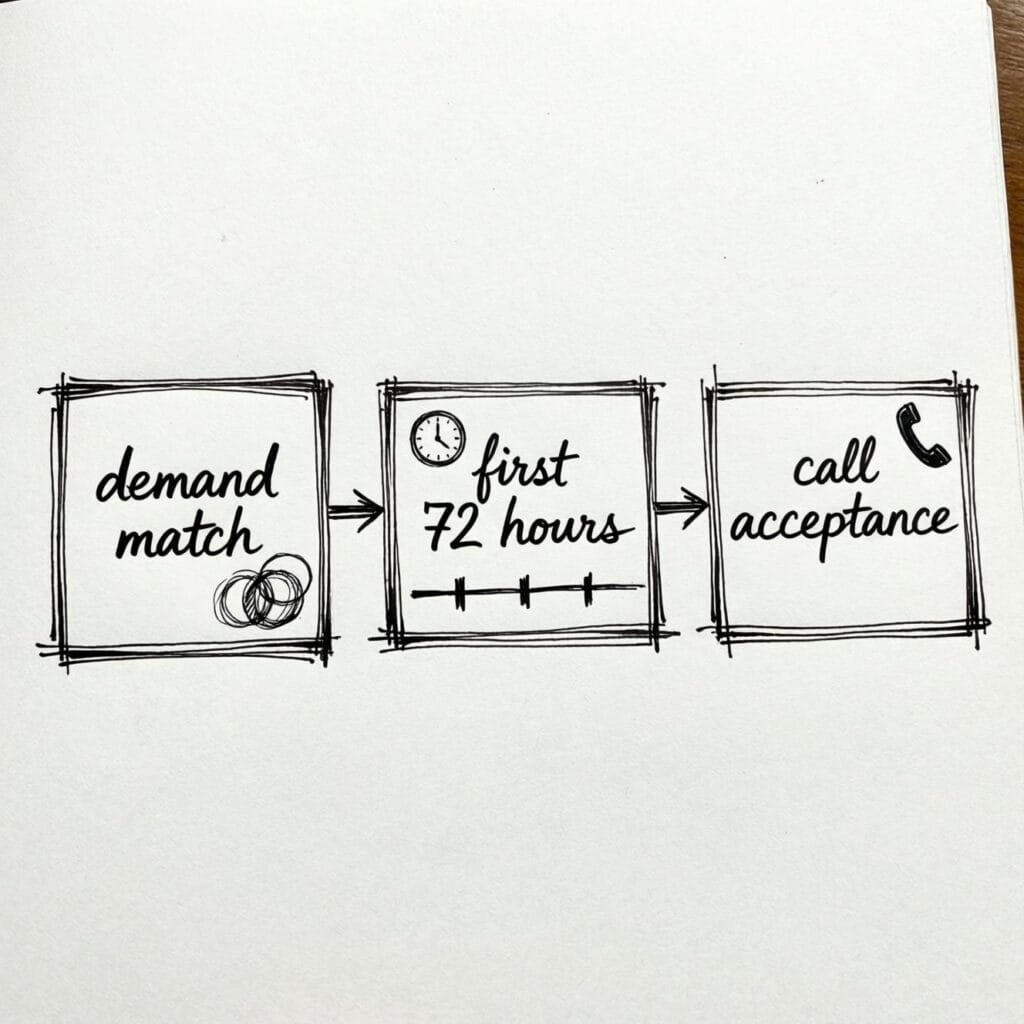 demand
match
first
72 hours
call
acceptance